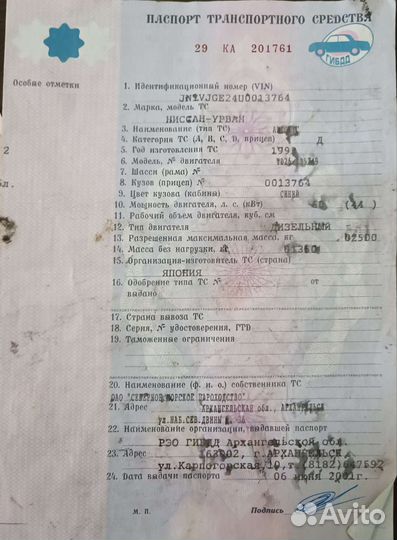 ПАСПОРТ ТРАНСПОРТНОГО СРЕДСТВА
29 КА 201761
ГИБДД
Особые отметки
2
бл.
1. Идентификационный номер (VIN)
JN1VJGE24U0013764
2. Марка, модель ТС
НИССАН-УРВАН
3. Наименование (тип ТС)
4. Категория ТС (А, В, С, D, прицеп) Д
5. Год изготовления ТС
6. Модель, № двигателя
7. Шасси (рама) №
8. Кузов (прицеп) № 0013764
9. Цвет кузова (кабины) СИНИЙ
10. Мощность двигателя, л. с. (кВт)
11. Рабочий объем двигателя, куб. см
12. Тип двигателя ДИЗЕЛЬНЫЙ
13. Разрешенная максимальная масса, кг 02500
14. Масса без нагрузки, кг 01360
15. Организация-изготовитель ТС (страна)
ЯПОНИЯ
16. Одобрение типа ТС № от
выдано
17. Страна вывоза ТС
18. Серия, № удостоверения, ГТД
19. Таможенные ограничения
20. Наименование (ф. и. о.) собственника ТС
ОАО "СЕВЕРНОЕ МОРСКОЕ ПАРОХОДСТВО"
21. Адрес АРХАНГЕЛЬСКАЯ обл., АРХАНГЕЛЬСК
ул.НАБ.СЕВ.ДВИНЫ
22. Наименование организации, выдавшей паспорт
РЭО ГИБДД Архангельской обл.
23. Адрес г.АРХАНГЕЛЬСК
ул.Карпогорская,10,т.(8182)647592
24. Дата выдачи паспорта 06 июня 2001г.
М. П. Подпись
Avito